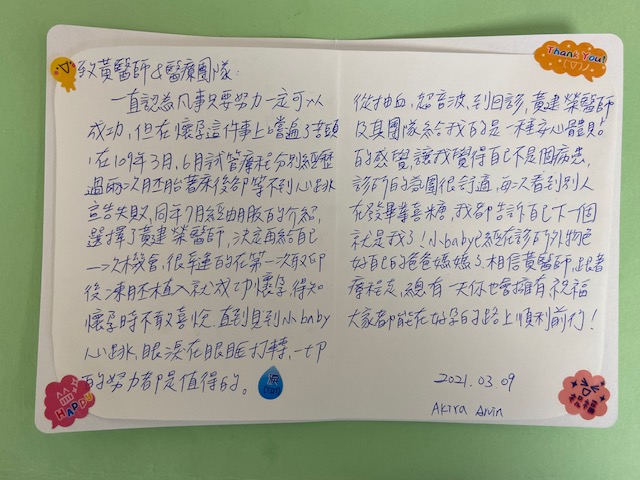 致黃醫師&醫療團隊:
一直認為凡事只要努力一定可以
成功,但在懷孕這件事上嚐遍了苦頭
,在109年3月,6月試管療程分別經歷
過兩次月胚胎著床後卻等不到心跳
宣告失敗,同年7月經由朋友的介紹,
選擇了黃建榮醫師,決定再給自己
一次機會,很幸運的在第一次取卵
後凍胚植入就成功懷孕,得知
懷孕時不敢喜悅,直到見到小baby
心跳,眼淚在眼眶打轉,一切
的努力都是值得的。
HAPPY
Thank You!
從抽血,超音波,到回診,黃建榮醫師
及其團隊給我的是一種安心體貼
的感覺,讓我覺得自己不是個病患,
診所的氛圍很舒適,每次看到別人
在發畢業喜糖,我都告訴自己下一個
就是我了!小baby已經在診所外物色
好自己的爸爸媽媽了.相信黃醫師,跟著
療程走,總有一天你也會擁有,祝福
大家都能在好孕的路上順利前行!
2021.03.09
Akira